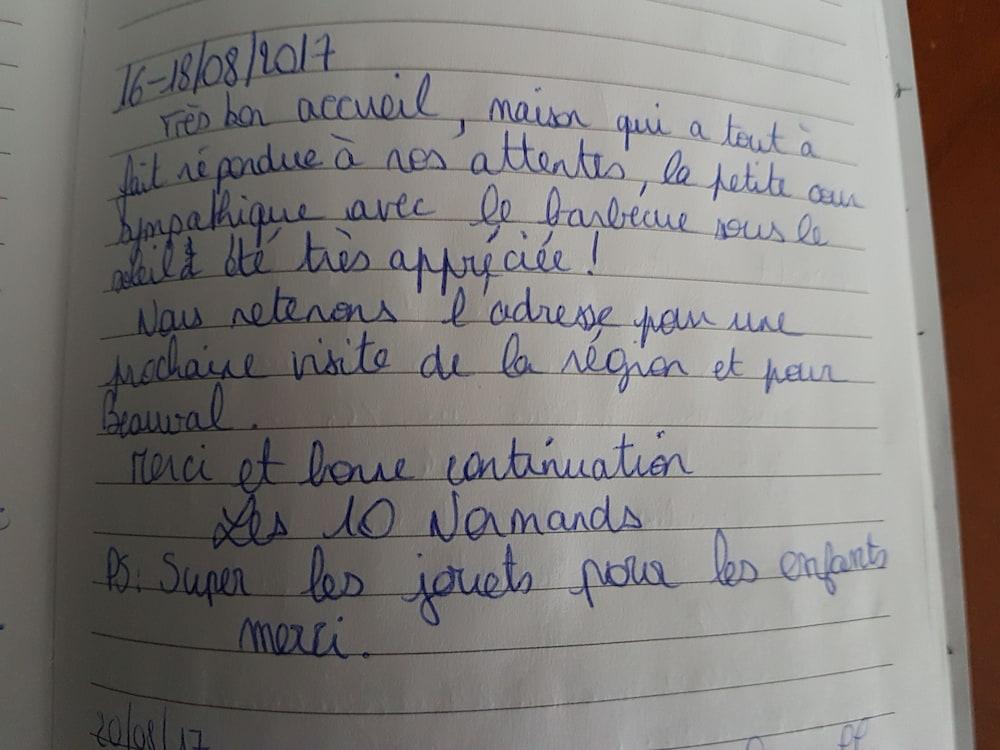 16-18/08/2017
Très bon accueil, maison qui a tout à
fait répondue à nos attentes, la petite cour
sympathique avec le barbecue sous le
soleil à été très appréciée !
Nous retenons l'adresse pour une
prochaine visite de la région et pour
Beauval.
Merci et bonne continuation
Les 10 Normands
PS: Super les jouets pour les enfants
merci.
20/08/17